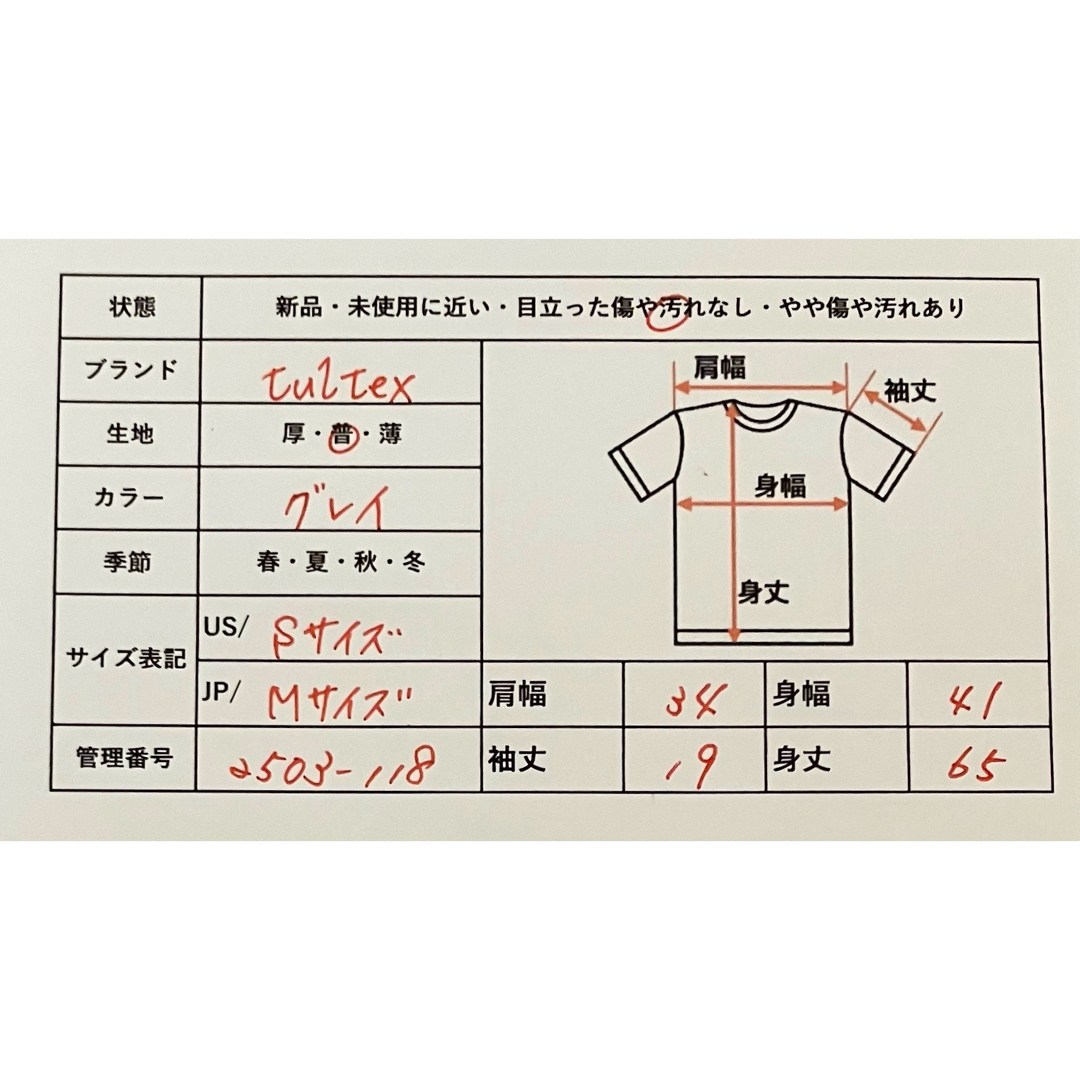 状態 新品・未使用に近い・目立った傷や汚れなし・やや傷や汚れあり
ブランド tultex
生地 厚・普・薄
カラー グレイ
季節 春・夏・秋・冬
サイズ表記
US/ Sサイズ
JP/ Mサイズ
管理番号 2503-118
肩幅
袖丈
身幅
身丈
肩幅 34 身幅 41
袖丈 19 身丈 65